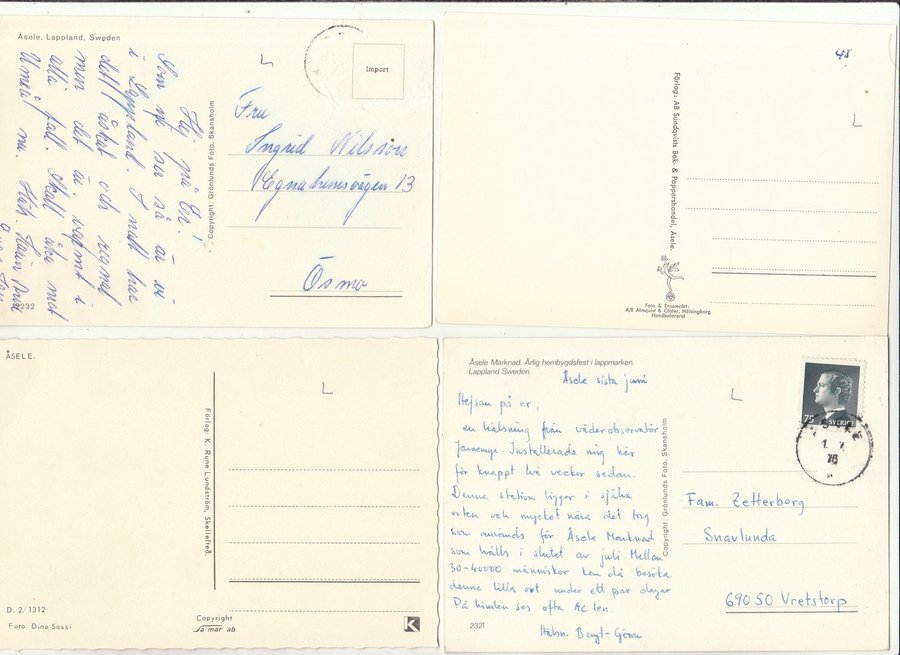 Åsele, Lappland, Sweden
Import
Hej på Er!
Som ni ser så är vi
i Lappland. I natt har
det åskat och regnat
men det är varmt i
alla fall. Skall åka mot
Umeå nu. Häls.
232
Copyright: Grönlunds Foto, Skansholm
Fru
Ingrid Nilsson
Egnahemsvägen 13
Ösmo
48
L
Förlag: AB Sundqvists Bok- & Pappershandel, Åsele.
Foto & Ensamrätt:
A/B Almquist & Cöster, Hälsingborg
Handkolorerat
ÅSELE.
L
Förlag: K. Rune Lundström, Skellefteå.
D. 2/1312
Foto: Dino Sassi
Copyright
sa-mar ab
K
Åsele Marknad. Årlig hembygdsfest i lappmarken.
Lappland Sweden.
Åsele sista juni
Hejsan på er,
en hälsning från väderobservatör
Installerade mig här
för knappt två veckor sedan.
Denna station ligger i själva
orten och mycket nära det torg
som används för Åsele Marknad
som hålls i slutet av juli. Mellan
30-40000 människor kan då besöka
denna lilla ort under ett par dagar
På himlen ses ofta Ac len.
Hälsn Bengt-Göran
2321
Copyright: Grönlunds Foto, Skansholm
L
75 SVERIGE
1 7
76
Fam. Zetterberg
Snavlunda
690 50 Vretstorp